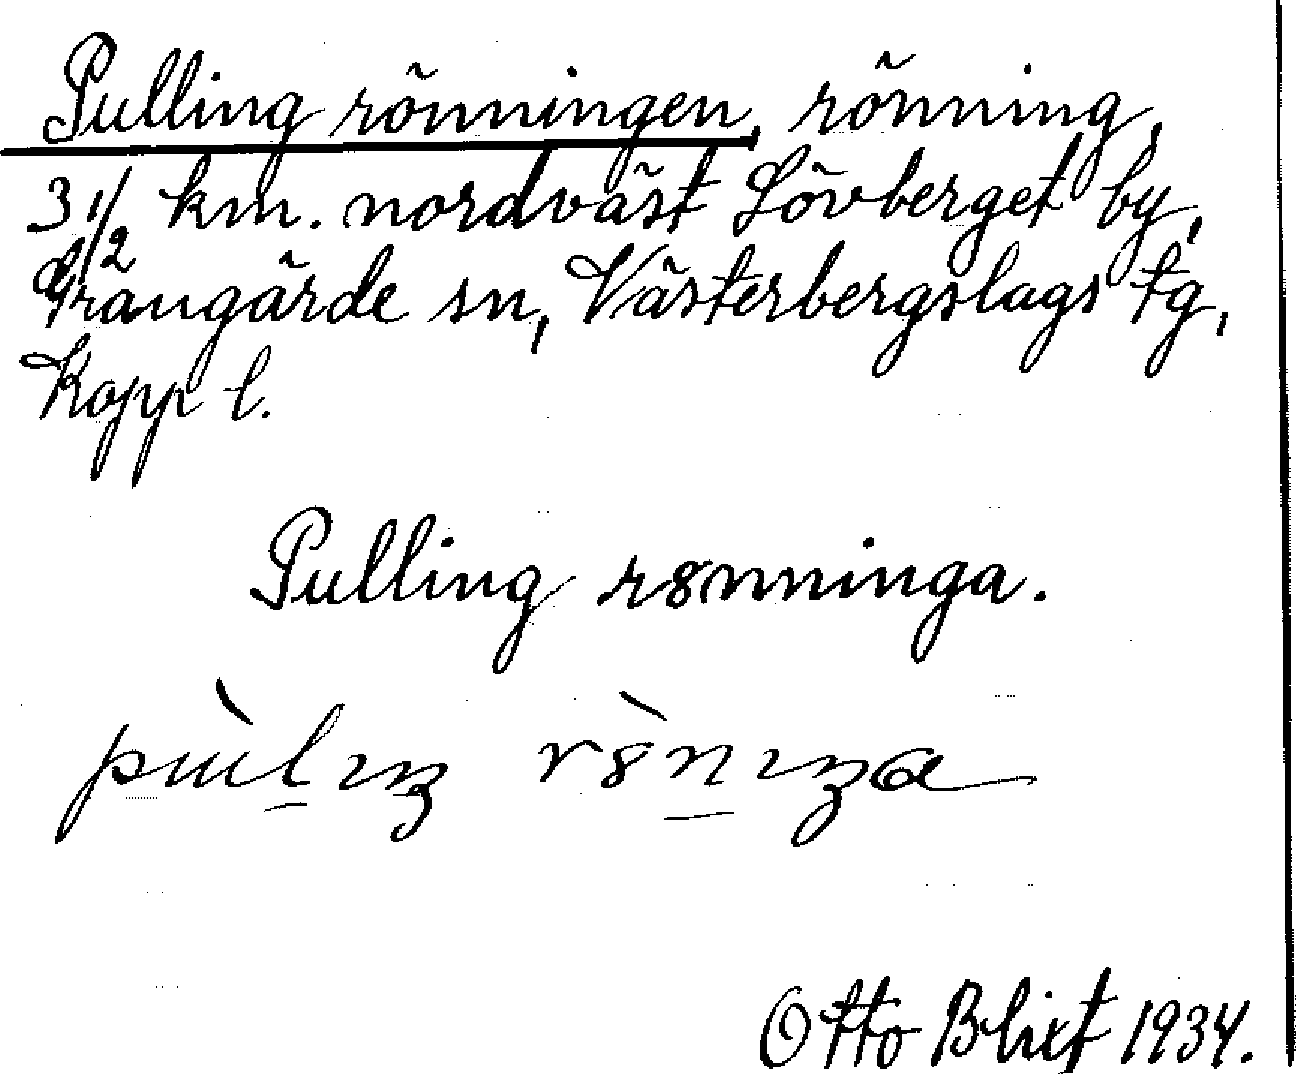 Pulling rönningen, rönning,
3 1/2 km. nordväst Lövberget by,
Grangärde sn, Västerbergslags tg,
Kopp l.
Pulling r8nninga.
Otto Blixt 1934.